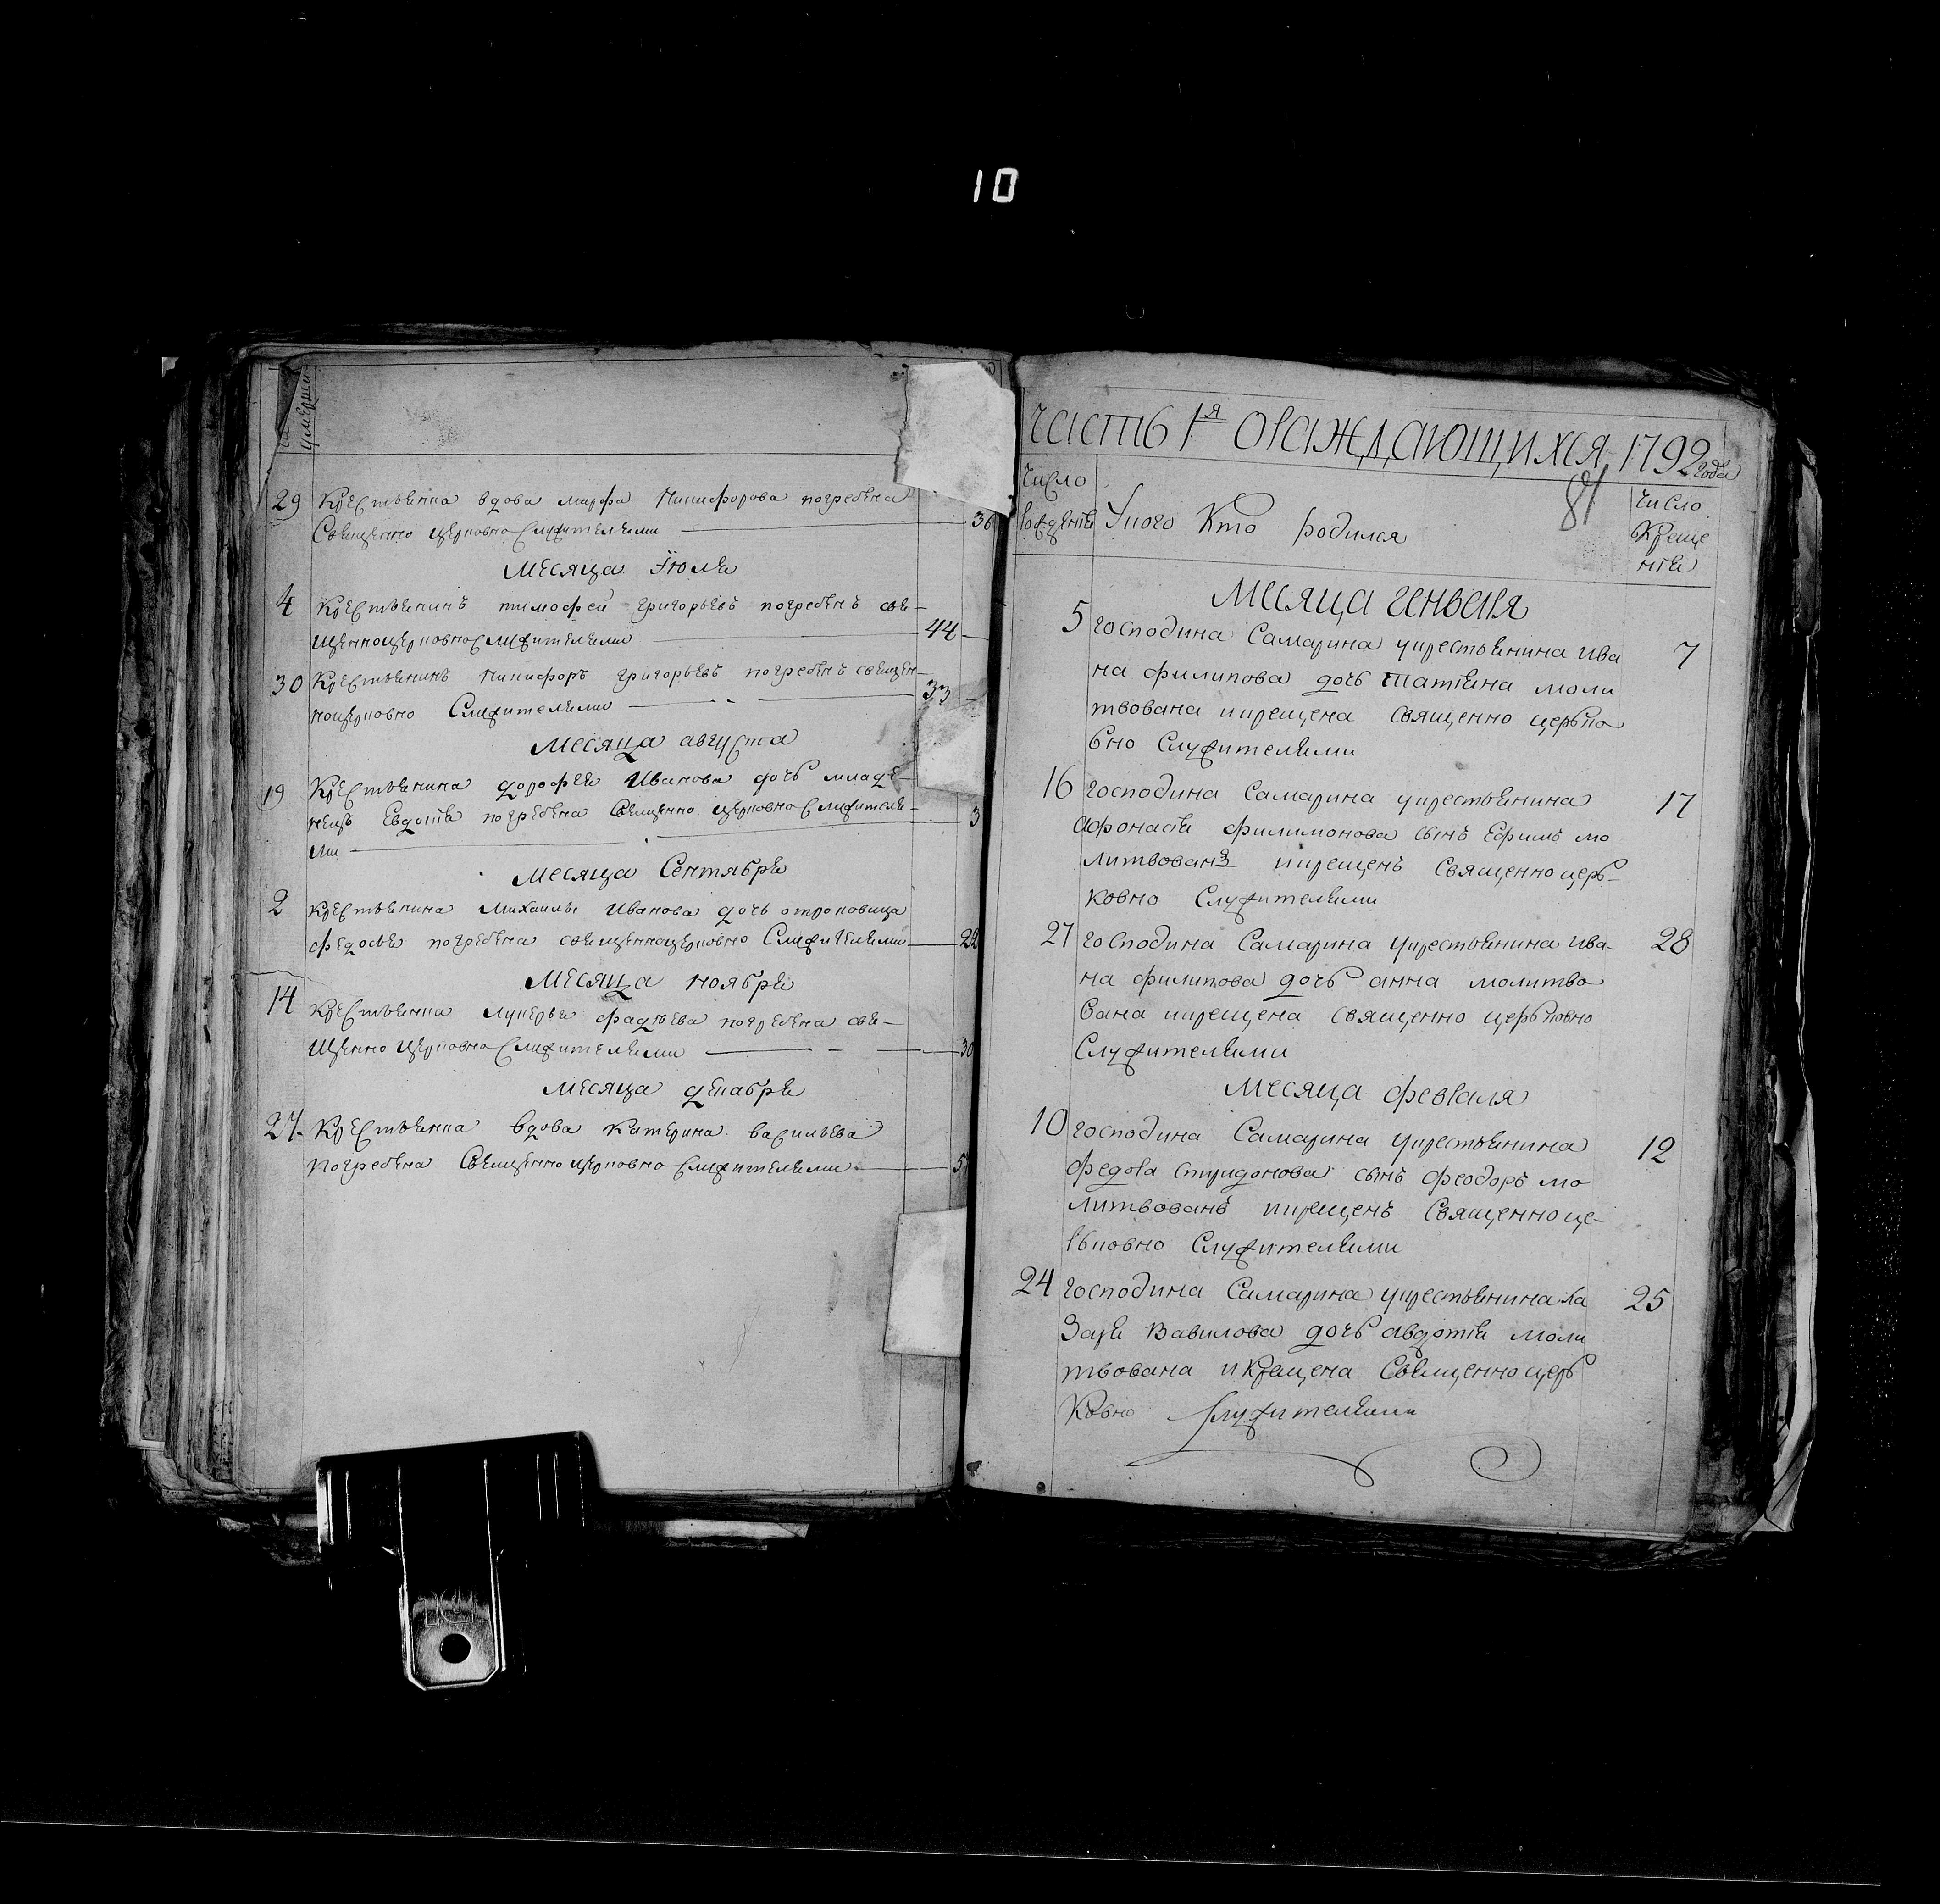 10
умерши
29 Крестьянка вдова марфа Никифорова погребена
Священно церковно Служителями 36
Месяца Їюля
4 Крестьянинъ тимофей григорьевъ погребенъ свя-
щенноцерковнослужителями 44
30 Крестьянинъ Никифоръ григорьевъ погребенъ священ-
ноцерковно Служителями 33
Месяца августа
19 Крестьянина дорофея Иванова дочь младе-
нецъ Евдотья погребена Священно церковно служителя- 3
ми
Месяца Сентября
2 крестьянина Михаилы Иванова дочь отроковица
федосья погребена священноцерковно Служителями 22
Месяца ноября
14 крестьянка лукерья фадѣева погребена свя-
щенно церковно служителями 30
Месяца декабря
27. Крестьянка вдова катерина васильева
погребена Священно церковно служителями 57
часть 1я оражДающихся 1792 года
81
Число рожденія
Укого Кто родился
Число Крещенія
Месяца генваря
5 господина Самарина укрестьянина ива 7
на филипова дочь татияна моли
твована икрещена священно церько
вно Служителями
16 господина Самарина укрестьянина 17
Афонасія филимонова сынъ Ефимъ мо
литвованъ икрещенъ Священно церь-
ковно Служителями
27 господина Самарина укрестьянина ива- 28
на филипова дочь анна молитво
вана икрещена священно церьковно
Служителями
Месяца февраля
10 господина Самарина укрестьянина 12
федора спиридонова сынъ феодоръ мо
литвованъ икрещенъ Священно це-
рьковно Служителями
24 господина Самарина укрестьянина ла 25
заря Вавилова дочь авдотья моли
твована икрещена Священно церь
ковно служителями